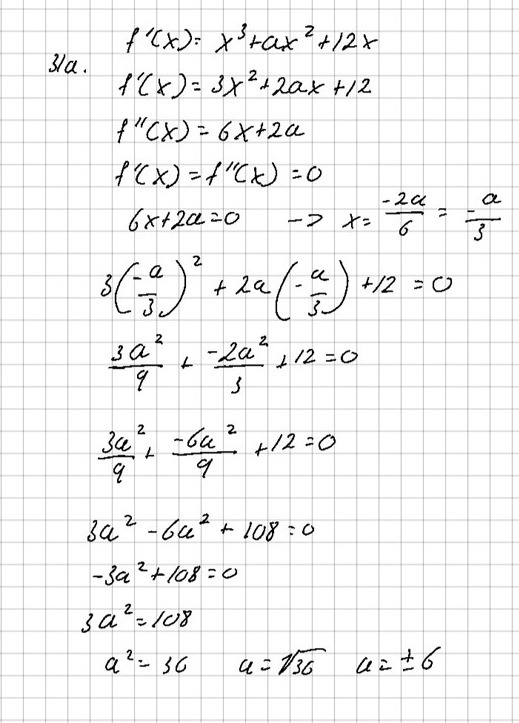 f'(x) = x³+ax²+12x
31a.
f'(x) = 3x²+2ax+12
f''(x) = 6x+2a
f'(x) = f''(x) = 0
6x+2a=0 -> x= -2a/6 = -a/3
3(-a/3)² + 2a(-a/3) +12 = 0
3a²/9 + -2a²/3 +12=0
3a²/9 + -6a²/9 +12=0
3a² -6a² + 108=0
-3a²+108=0
3a²=108
a²= 36 a=√36 a=±6